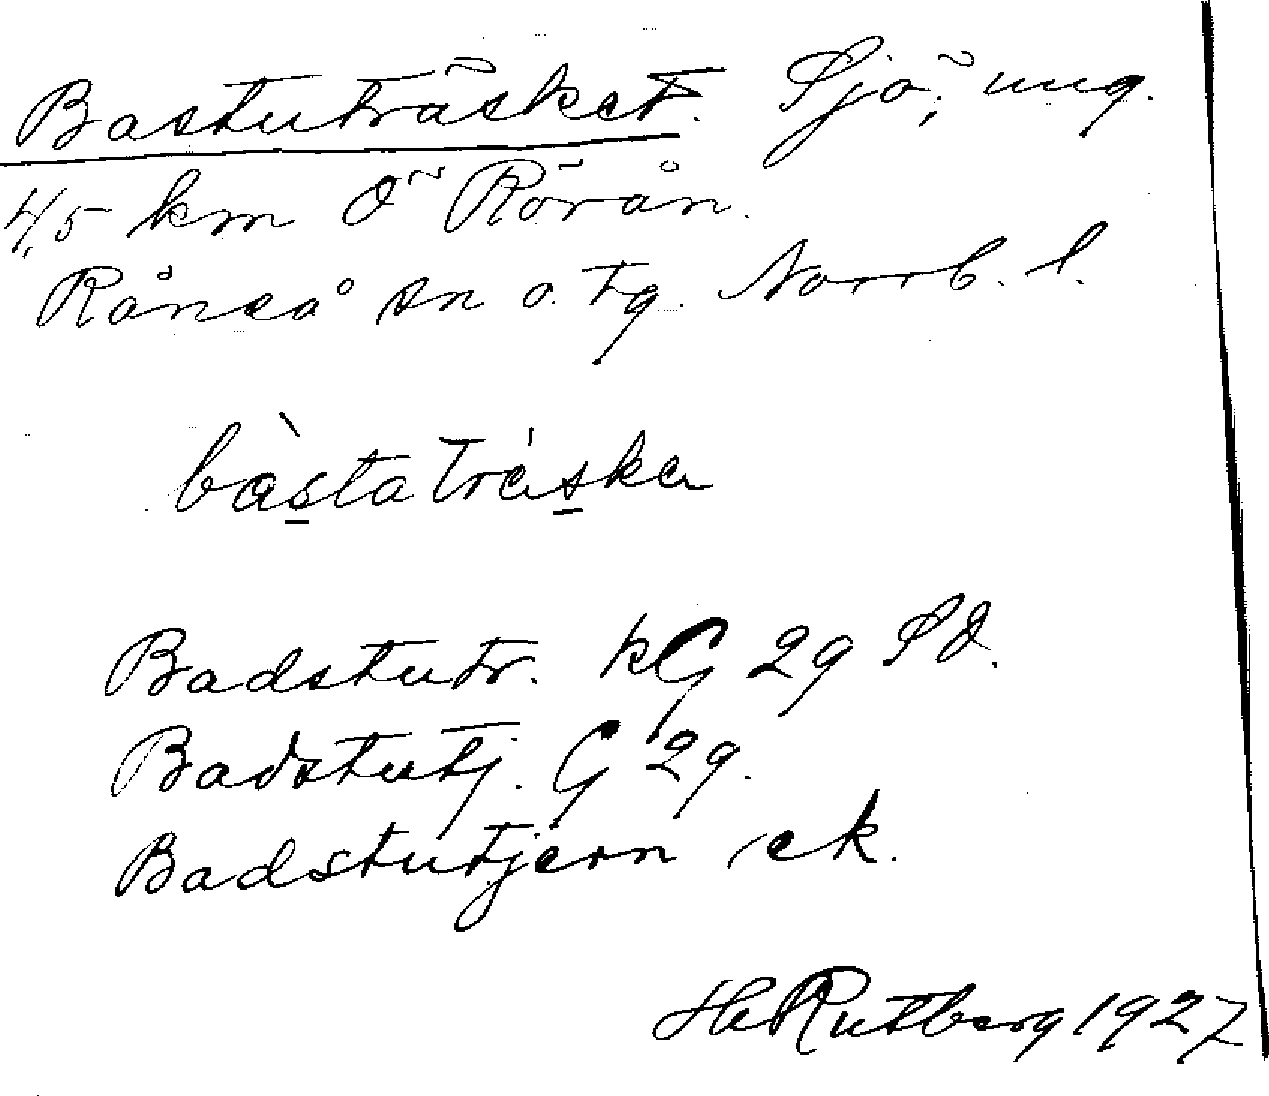 Bastuträsket. Sjö, ung.
4,5 km Ö Rörån.
Råneå sn o. tg. Norrb. l.
bàstatráska
Badstutr. kG 29 SO.
Badstutj. G 29.
Badstutjern ek.
H Rutberg 1927